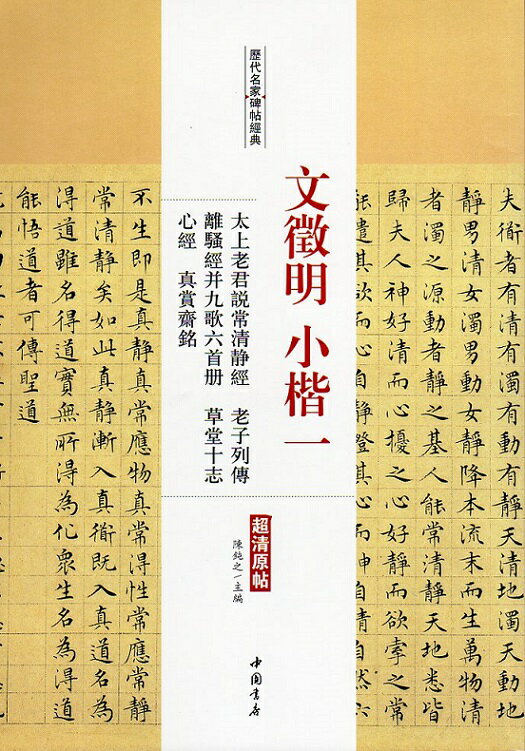 歷代名家碑帖經典
文徵明 小楷 一
太上老君説常清静經 老子列傳
離騷經并九歌六首册 草堂十志
心經 真賞齋銘
超清原帖
陳鈍之／主編
中国書店
夫衜者有清有濁有動有靜天清地濁天動地
靜男清女濁男動女靜降本流末而生萬物清
者濁之源動者靜之基人能常清靜天地悉皆
歸夫人神好清而心擾之心好靜而欲牽之常
能遣其欲而心自靜澄其心而神自清自然六
不生即是真靜真常應物真常得性常應常靜
常清靜矣如此真靜漸入真道既入真道名為
得道雖名得道實無所得為化眾生名為得道
能悟道者可傳聖道